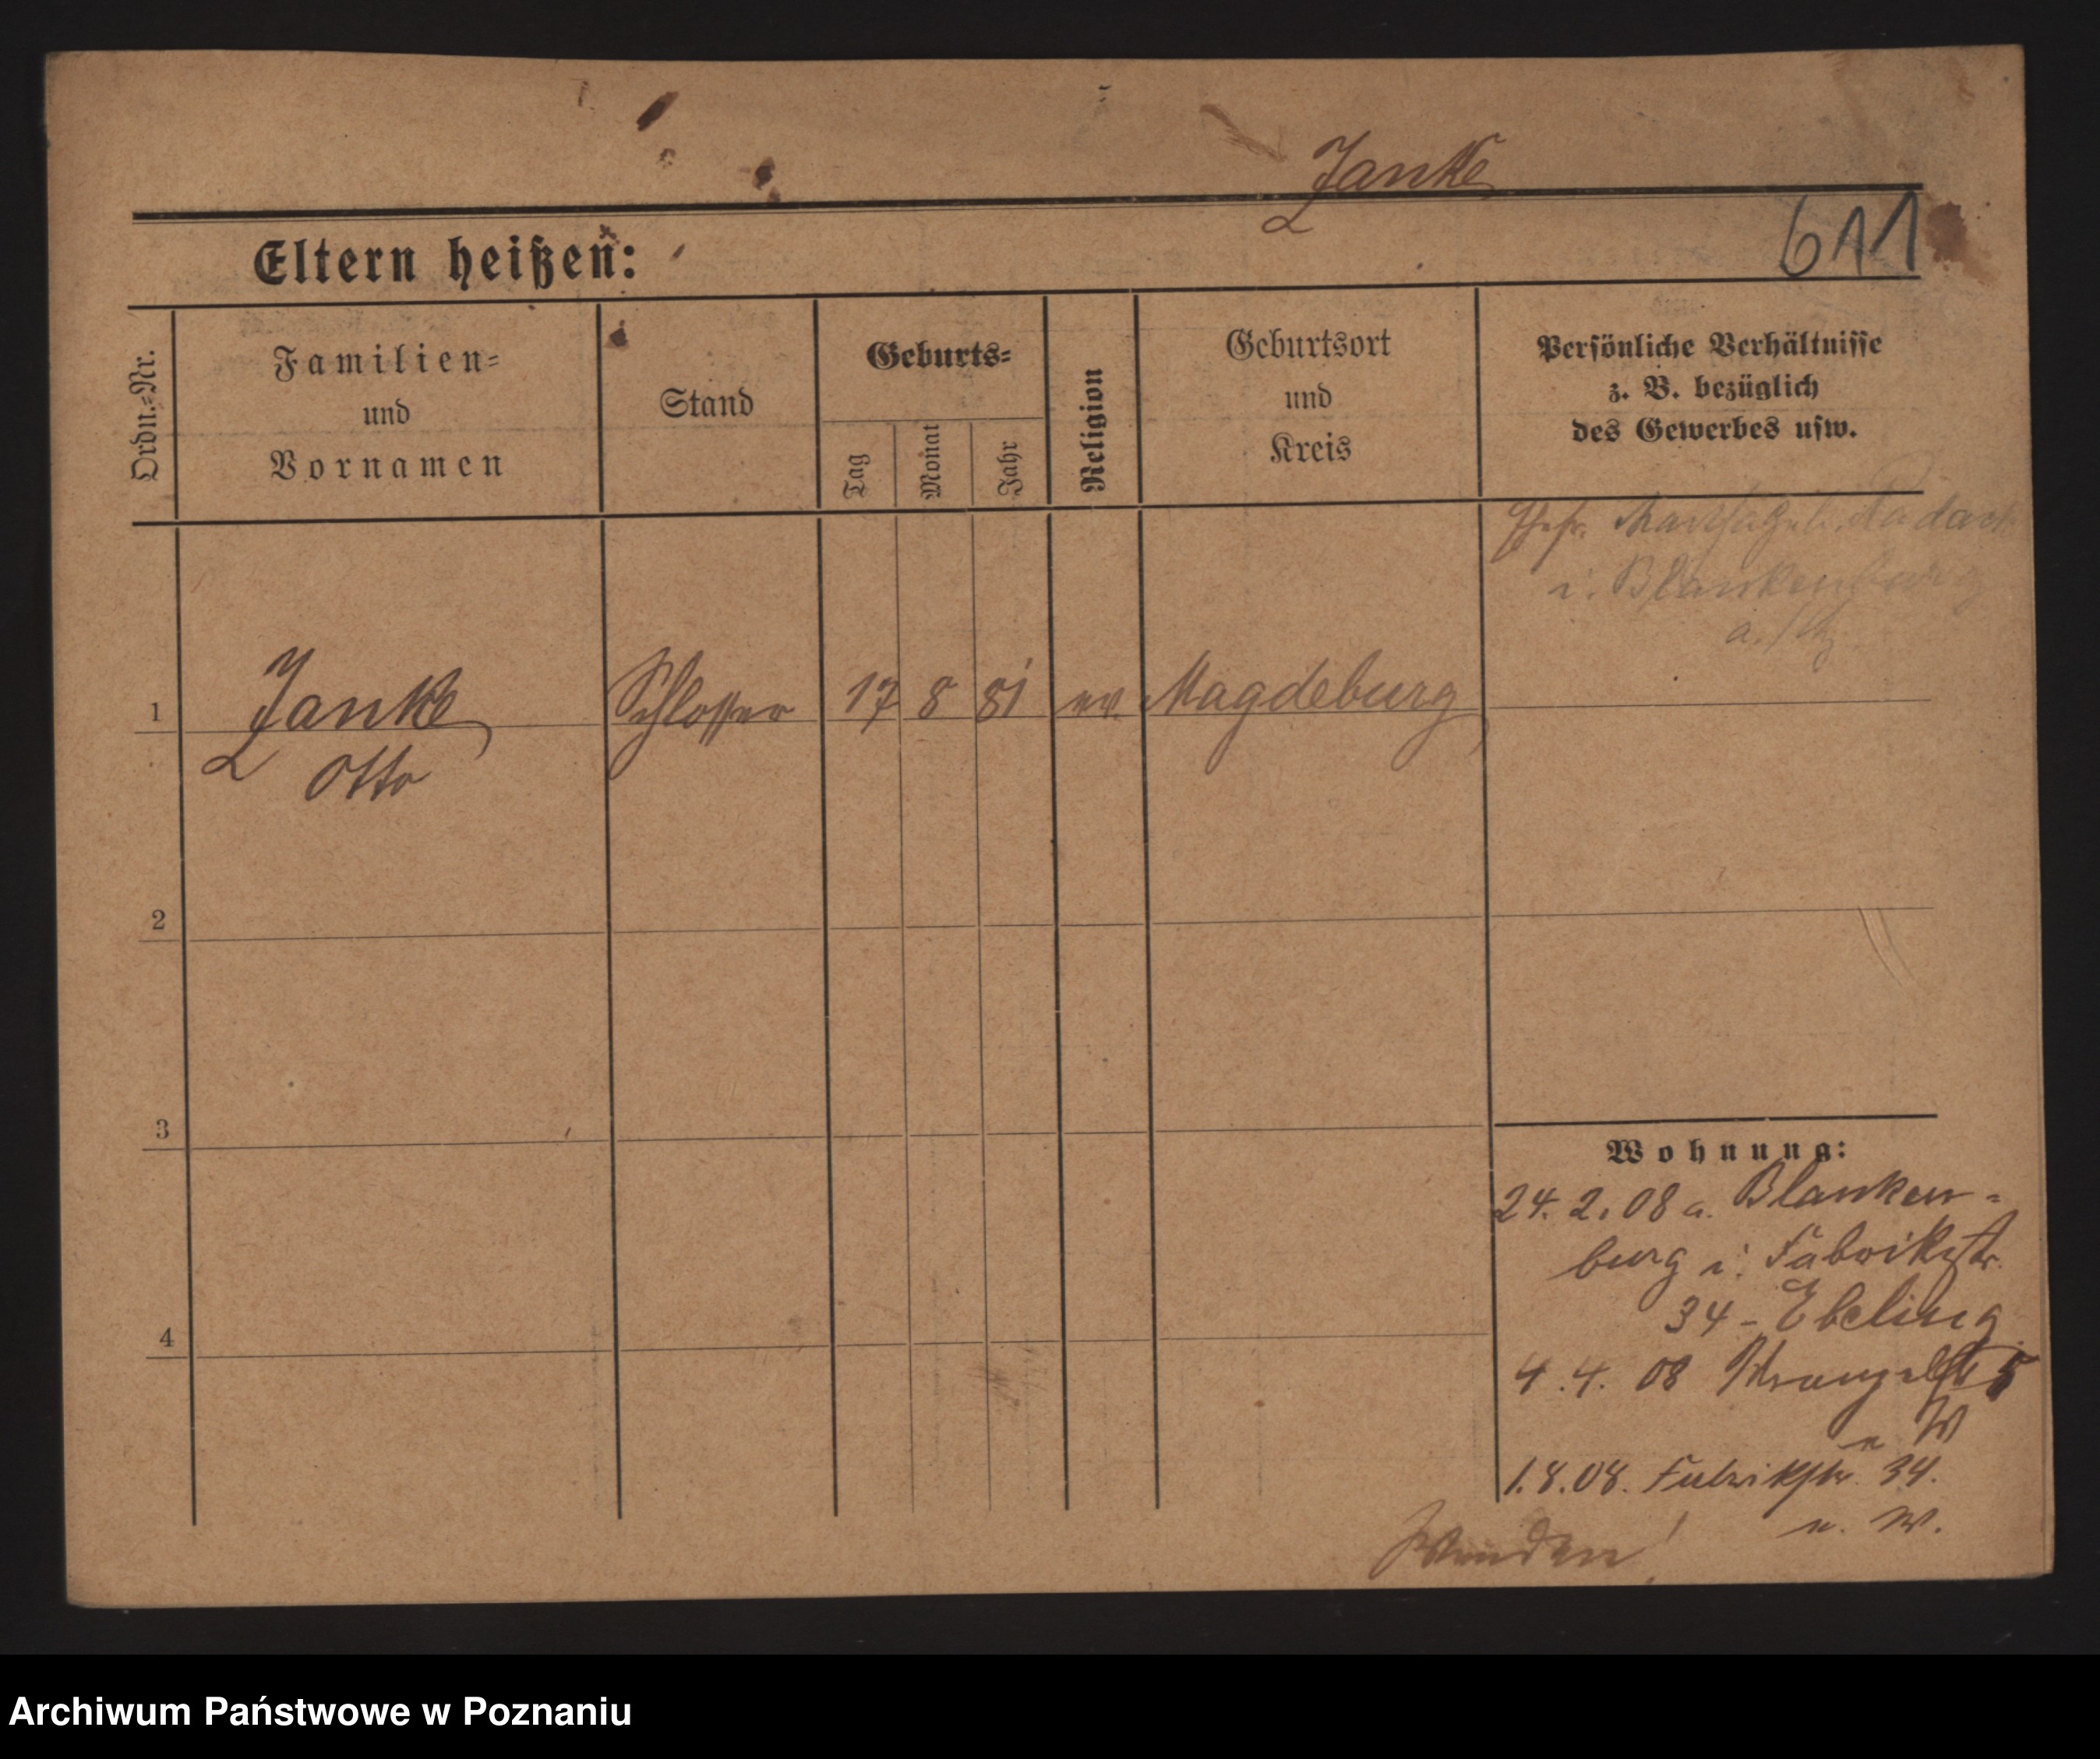 Janke
611
Eltern heißen:
Ordn.-Nr.
Familien-
und
Vornamen
Stand
Geburts-
Tag
Monat
Jahr
Religion
Geburtsort
und
Kreis
Persönliche Verhältnisse
z. B. bezüglich
des Gewerbes usw.
Ehefr.
i. Blankenburg
a./Hz.
1 Janke Schlosser 17 8 81 ev. Magdeburg
Otto
2
3
4
Wohnung:
24. 2. 08 a. Blanken-
burg i. Fabrikstr.
34 - Ebeling
4. 4. 08 Wrangelstr 5
W
1.8.08. Fabrikstr. 34.
n. W.
Wenden!
Archiwum Państwowe w Poznaniu